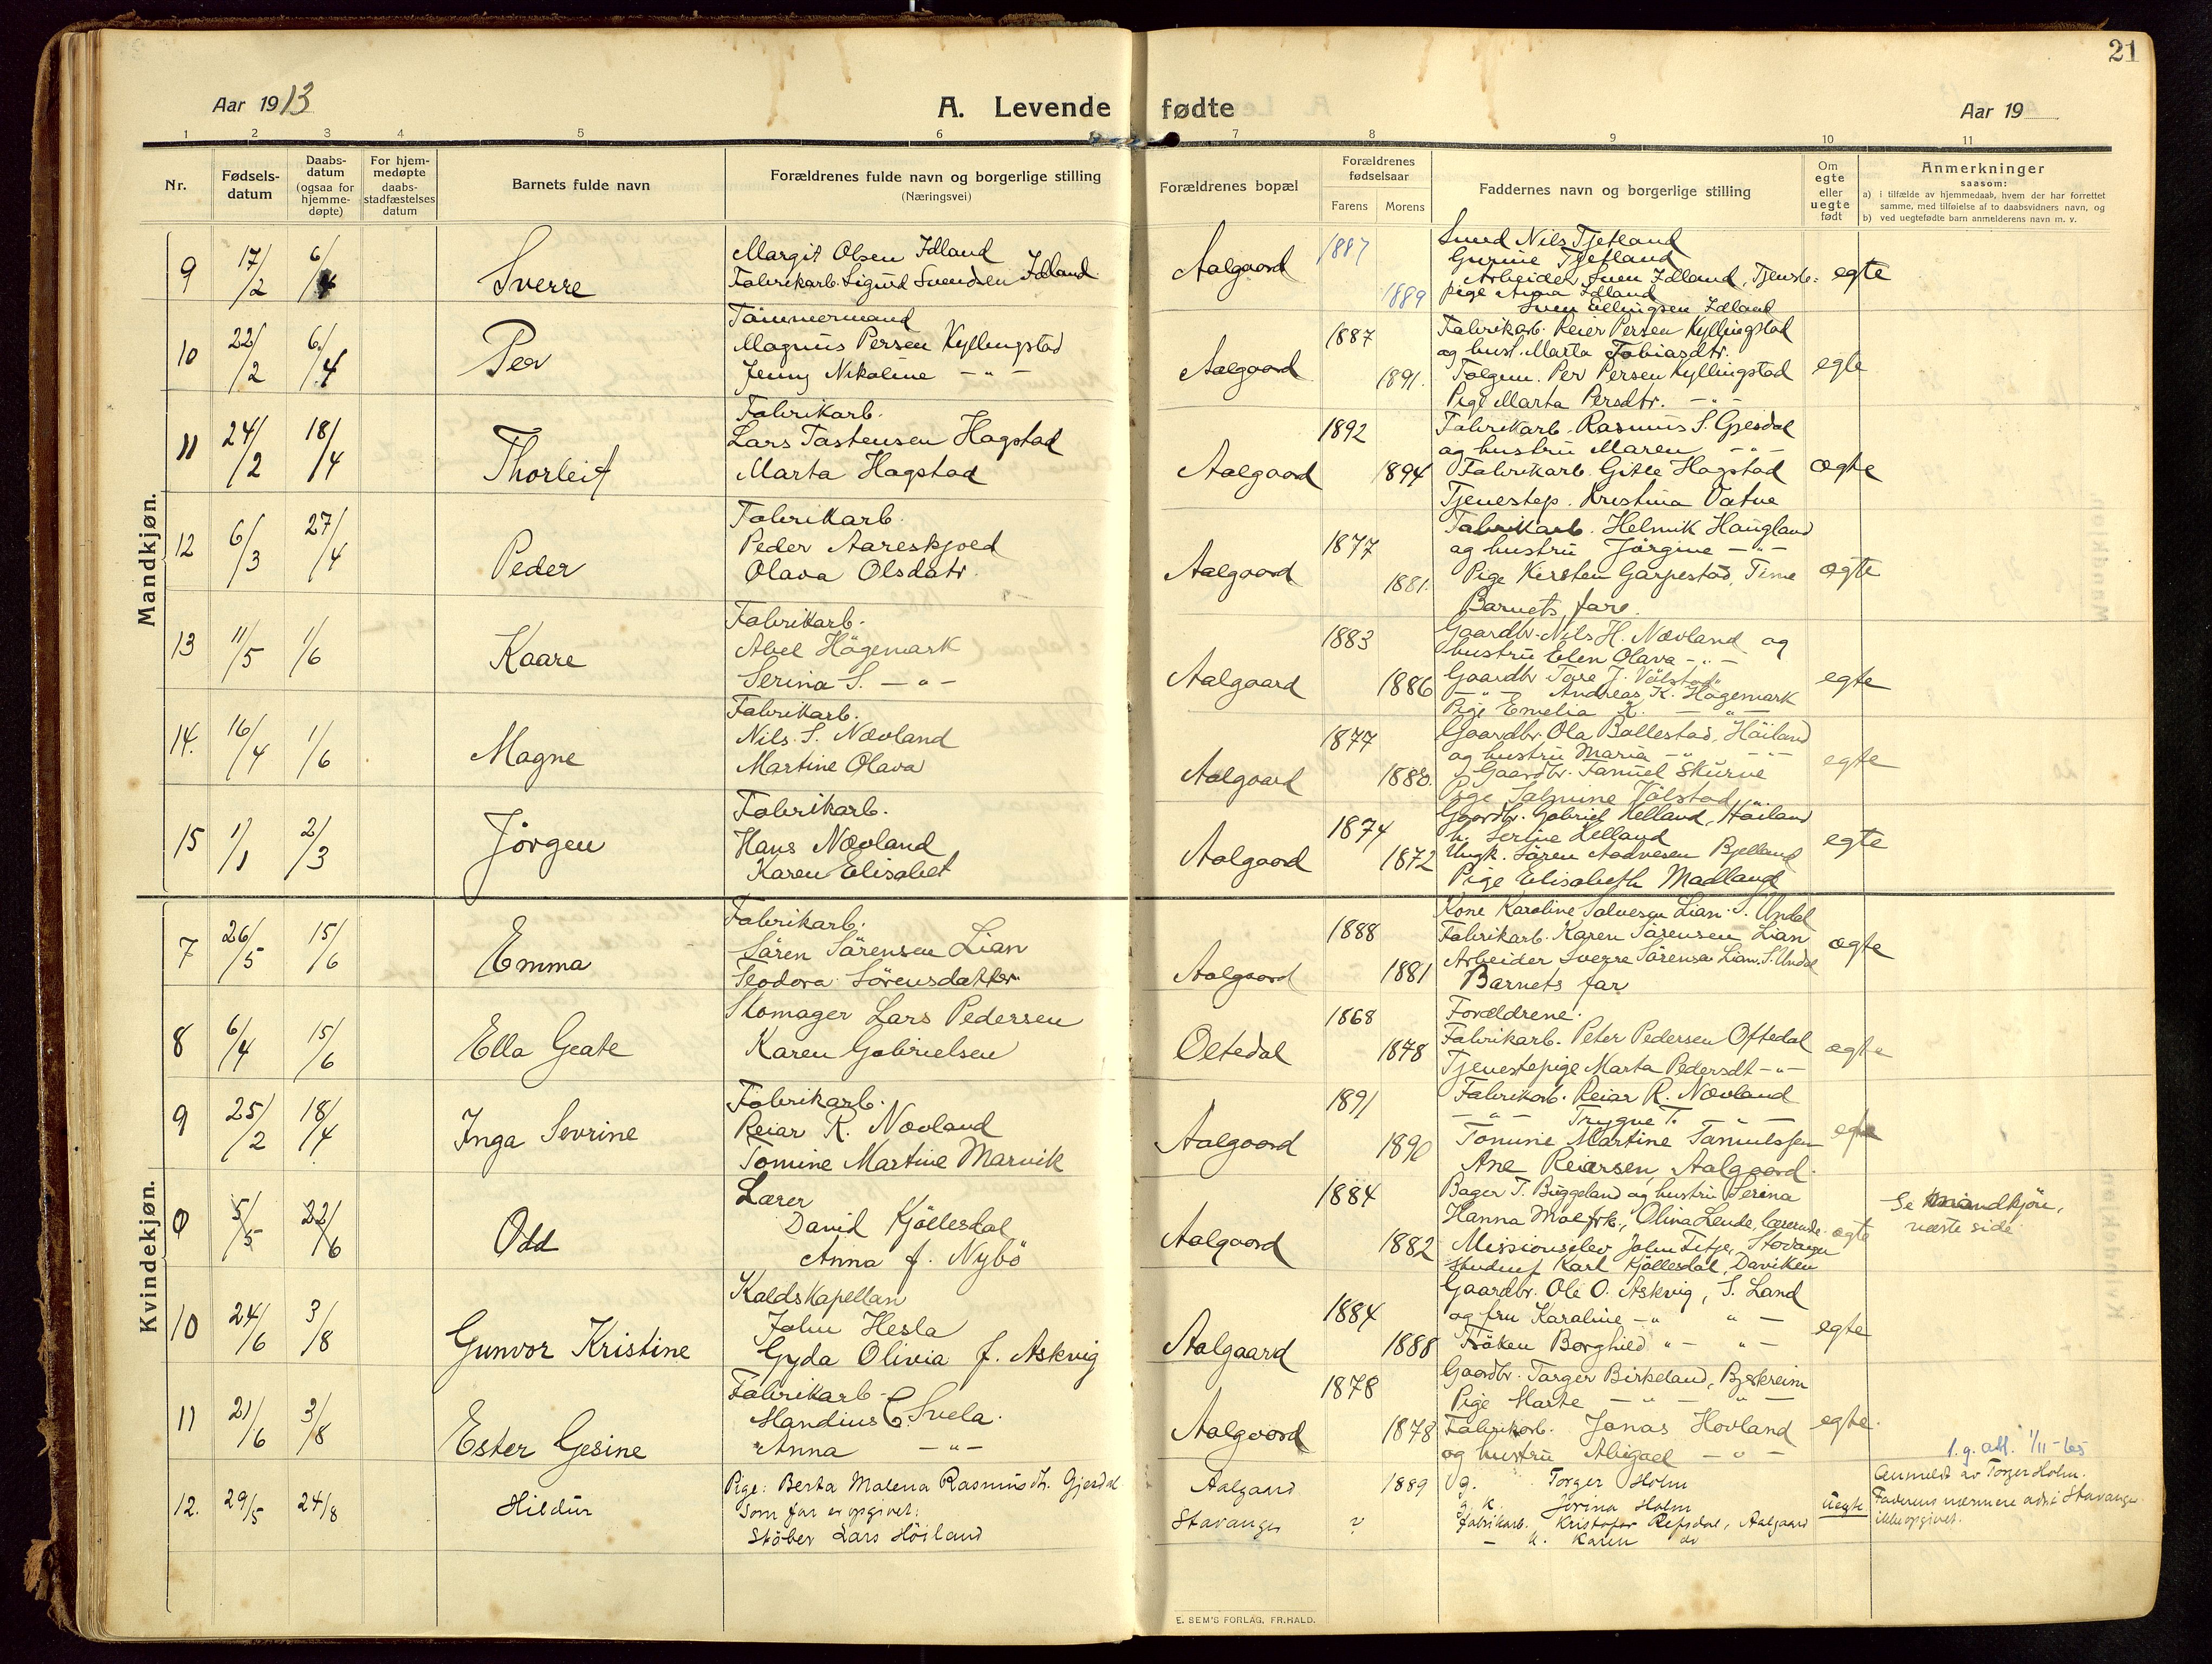 21
Aar 1913
A. Levende fødte
Aar 19
1 2 3 4 5 6 7 8 9 10 11
Nr.
Fødsels-
datum
Daabs-
datum
(ogsaa for
hjemme-
døpte)
For hjem-
medøpte
daabs-
stadfæstelses
datum
Barnets fulde navn
Forældrenes fulde navn og borgerlige stilling
(Næringsvei)
Forældrenes bopæl
Forældrenes
fødselsaar
Farens Morens
Faddernes navn og borgerlige stilling
Om
egte
eller
uegte
født
Anmerkninger
saasom:
a) i tilfælde av hjemmedaab, hvem der har forrettet
samme, med tilføielse af to daabsvidners navn, og
b) ved uegtefødte barn anmelderens navn m. v.
Mandkjøn.
9 17/2 6/4 Sverre
Margit Olsen Idland
Fabrikarb. Sigurd Svendsen Idland
Aalgaard 1887 1889
Nils Tjetland
Gurine Tjetland
Arbeider Sven Idland, Tjeneste-
pige Anna Idland
Sven Ellingsen Idland
egte
10 22/2 6/4 Per
Tømmermand
Magnus Persen Kyllingstad
Jenny Nikoline — " —
Aalgaard 1887 1891.
Fabrikarb. Reier Persen Kyllingstad
og hust. Marta Tobiasdtr.
Per Persen Kyllingstad
Pige Marta Persdtr. — " —
egte
11 24/2 18/4 Thorleif
Fabrikarb.
Lars Tastensen Hagstad
Marta Hagstad
Aalgaard 1892 1894
Fabrikarb. Rasmus S. Gjesdal
og hustru Maren — " —
Fabrikarb. Gitle Hagstad
Tjenestep. Kristina Vatne
egte
12 6/3 27/4 Peder
Fabrikarb.
Peder Aareskjoed
Olava Olsdatr.
Aalgaard 1877 1881.
Fabrikarb. Helmik Haugland
og hustru Jörgine — " —
Pige Kirsten Garpestad, Time
Barnets fare.
egte
13 11/5 1/6 Kaare
Fabrikarb.
Abel Hägemark
Serina S. — " —
Aalgaard 1883 1886
Gaardbr. Nils H. Nævland og
hustru Elen Olava — " —
Gaardbr Tore J. Völstad
— " — Andreas K. Hägemark
Pige Emelia K. — " —
egte
14. 16/4 1/6 Magne
Fabrikarb.
Nils. S. Nævland
Martine Olava
Aalgaard 1877 1880.
Gaardbr. Ola Ballestad, Höiland
og hustru Maria — " — — " —
Gaardbr. Samuel Skurve
Pige Salmine Völstad
egte
15 1/1 2/3 Jörgen
Fabrikarb.
Hans Nævland
Karen Elisabet
Aalgaard 1874 1872
Gaardbr. Gabriel Helland, Höiland
h. Serine Helland
Ungk. Sören Aadnesen Bjelland
Pige Elisabeth Madland
egte
Kvindekjøn.
7 26/5 15/6 Emma
Fabrikarb.
Sören Sörensen Lian
Teodora Sörensdatter
Aalgaard 1888 1881
Kone Karoline Salvesen Lian. S. Undal
Fabrikarb. Karen Sörensen Lian
Arbeider Sverre Sörensen Lian. S. Undal
Barnets far
egte
8 6/4 15/6 Ella Geate
Skomager Lars Pedersen
Karen Gabrielsen
Oltedal 1868 1878
Forældrene.
Fabrikarb. Peter Pedersen Oftedal
Tjenestepige Marta Pedersdt — " —
egte
9 25/2 18/4 Inga Sevrine
Fabrikarb.
Reiar R. Nævland
Tomine Martine Marvik
Aalgaard 1891 1890
Fabrikarb. Reiar R. Nævland
— " — Trygve T. — " —
Tomine Martine Samuelsen
Ane Reiersen, Aalgaard.
egte
0 5/5 22/6 Odd
Lærer
David Kjöllesdal
Anna f. Nybö
Aalgaard 1884 1882
Bager T. Buggeland og hustru Serina
Hanna Moe frk., Olina Lende, lærerinde
Missionselev John Titje, Stavanger
student Karl Kjöllesdal, Daviken
egte
Se mandkjön,
næste side
10 24/6 3/8 Gunvor Kristine
Kaldskapellan
John Hesla
Gyda Olivia f. Askvig
Aalgaard 1884 1888
Gaardbr. Ole O. Askvig, S. Land
og fru Karoline — " " —
Fröken Borghild " — " —
egte
11 21/6 3/8 Ester Gesine
Fabrikarb.
Handius C. Svela.
Anna — " —
Aalgaard 1878 1878
Gaardbr. Torger Birkeland, Bjerkreim
Pige Marte — " — " —
Fabrikarb. Jonas Hovland
og hustru Abigael — " —
egte.
12. 29/5 24/8 Hildur
Pige: Berta Malena Rasmusdtr. Gjesdal
Som far er opgivet:
Stöber Lars Höiland
Aalgaard 1889
Stavanger ?
Torger Holm
Serina Holm
Fabrikarb. Kristofer Refsdal, Aalgaard
— h. Karen do
uegte
1. g. att. 1/11-65
Anmeldt av Torger Holm.
Faderens nærmere adr. i Stavanger
ikke opgivet.
E. SEM'S FORLAG, FR.HALD.